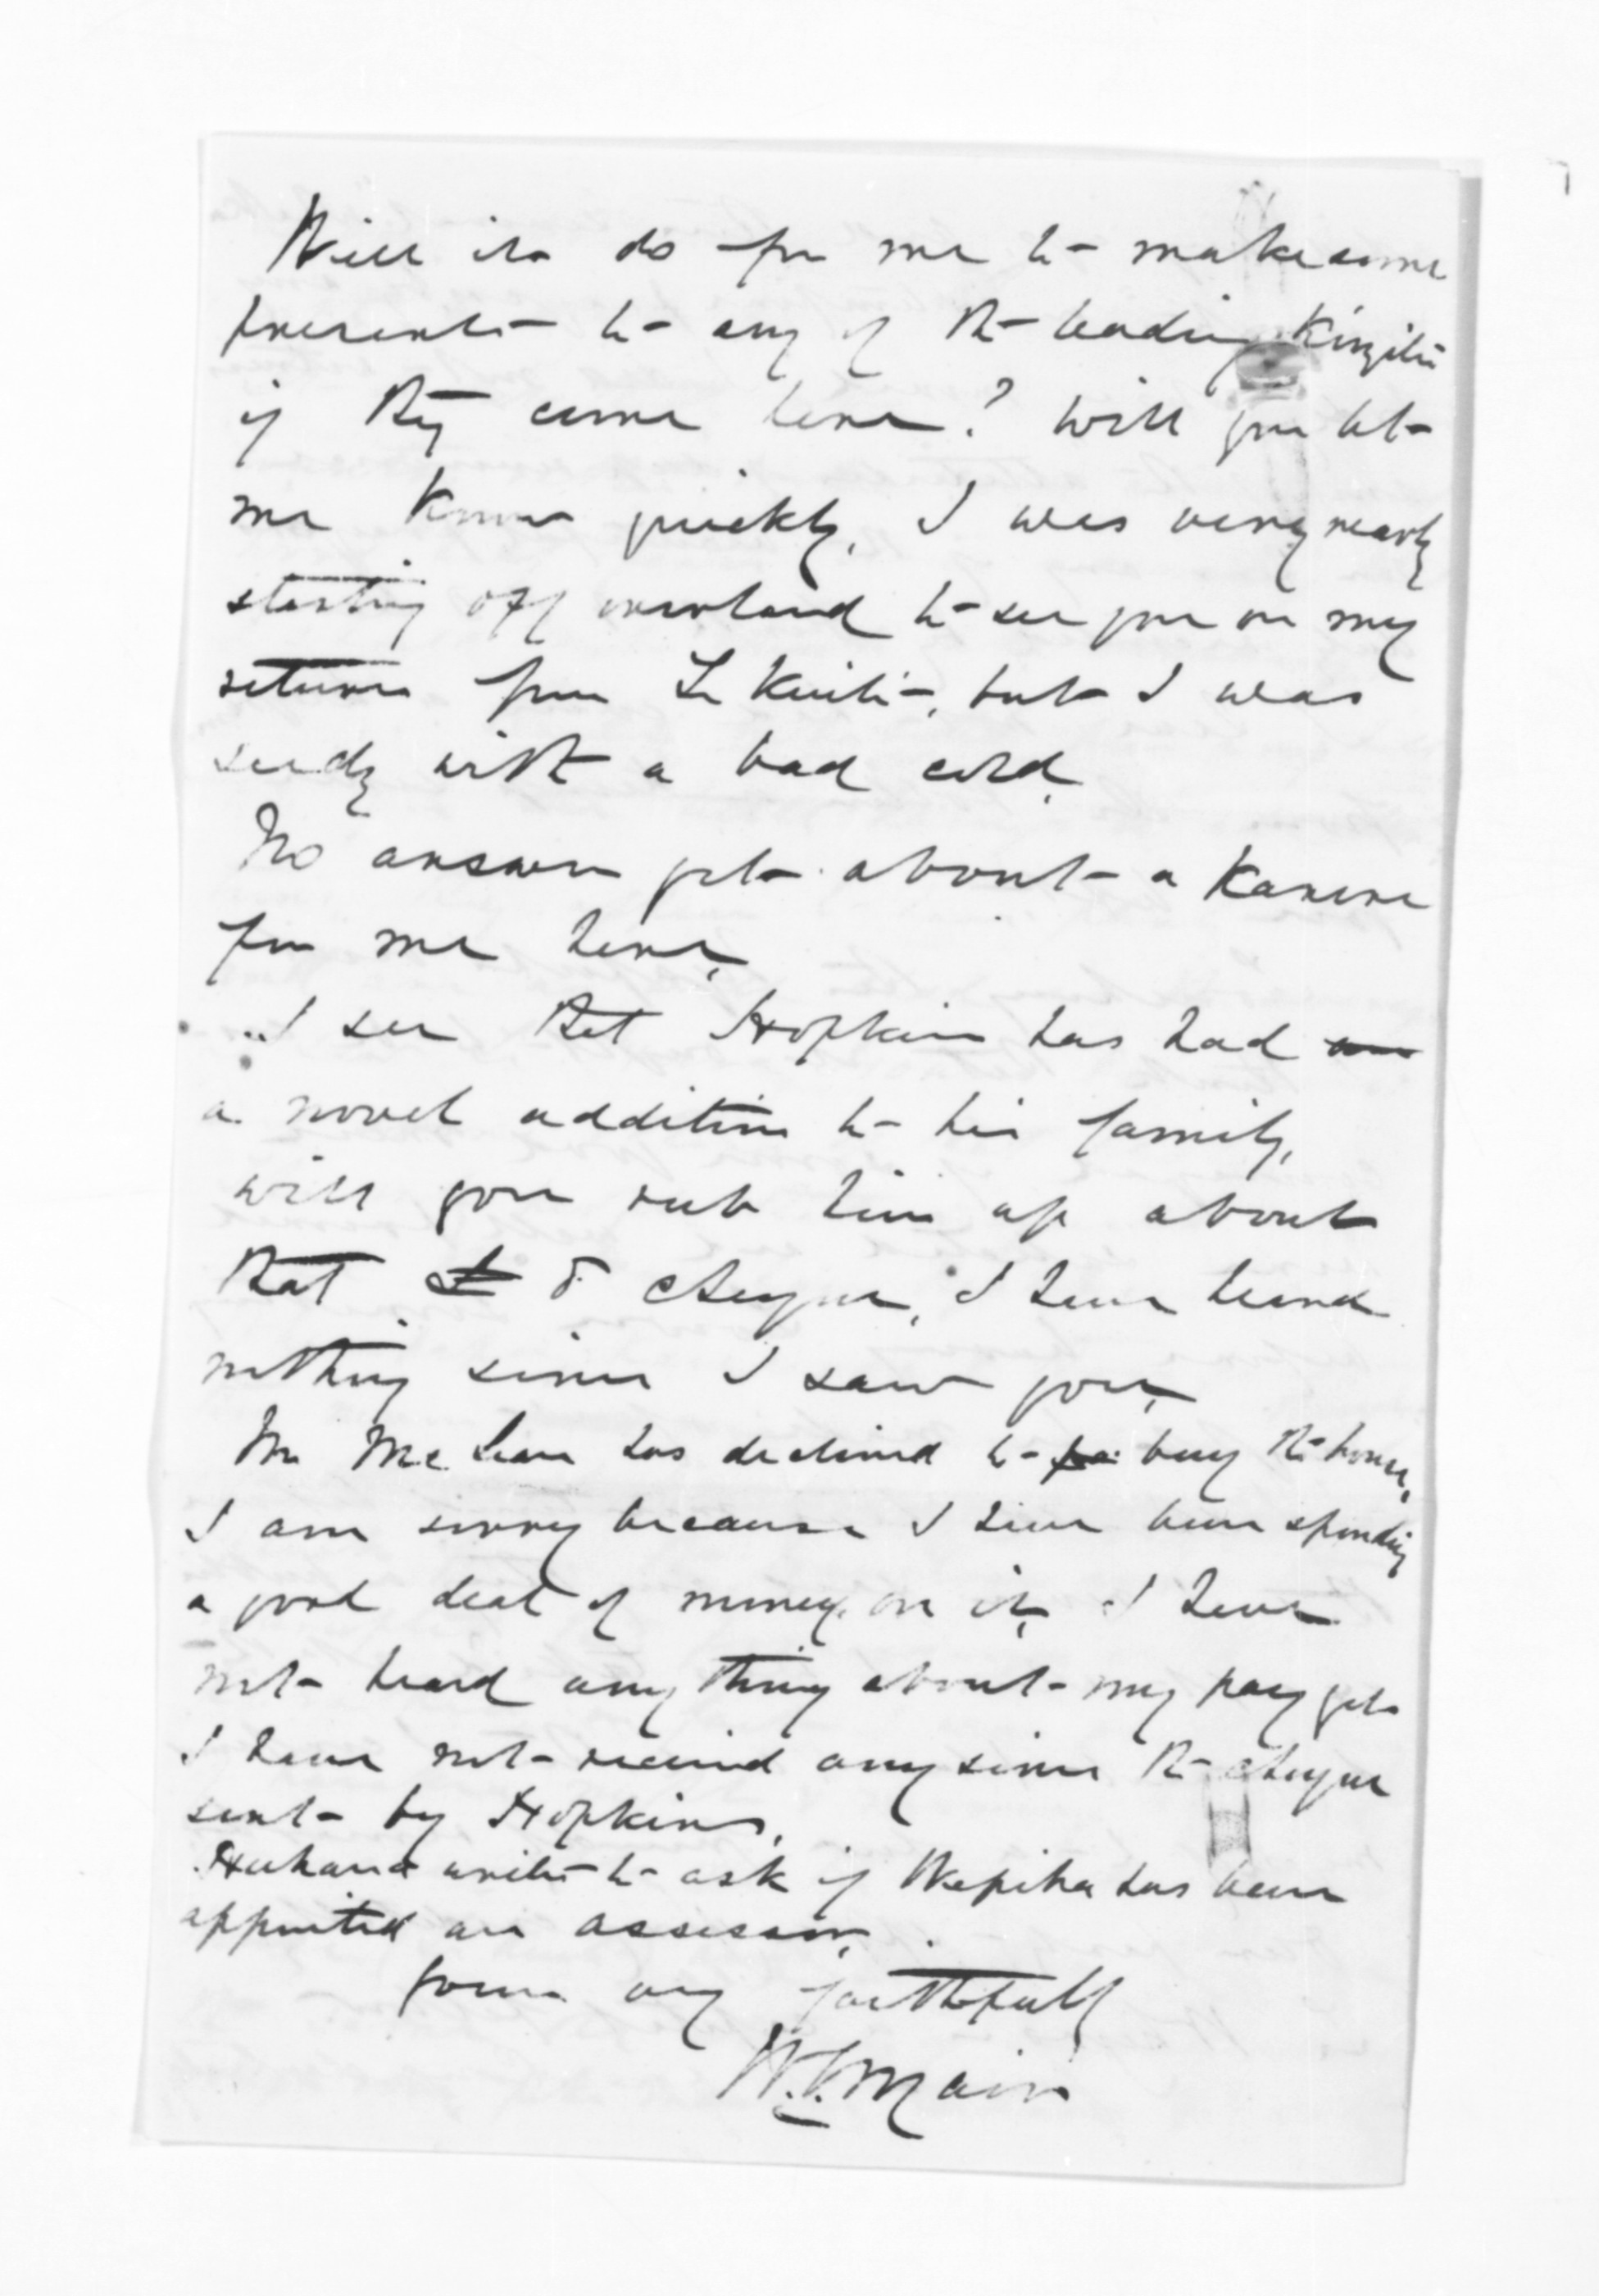 Will it do for me to make some
presents to any of the leading Kingites
if they come here? Will you let
me know quickly, I was very nearly
starting off overland to see you on my
return from Te Kuiti, but I was
seedy with a bad cold.
No answer yet about a Karere
for me here,
I see that Hopkins has had
a novel addition to his family,
will you rub him up about
that 8 cheque, I have heard
nothing since I saw you,
Mr McLean has declined to buy the house,
I am sorry because I have been spending
a good deal of money on it, I have
not heard anything about my pay yet
I have not received any since the cheque
sent by Hopkins,
writes to ask if Wepiha has been
appointed an assessor,
yours very faithfully
W.G. Mair